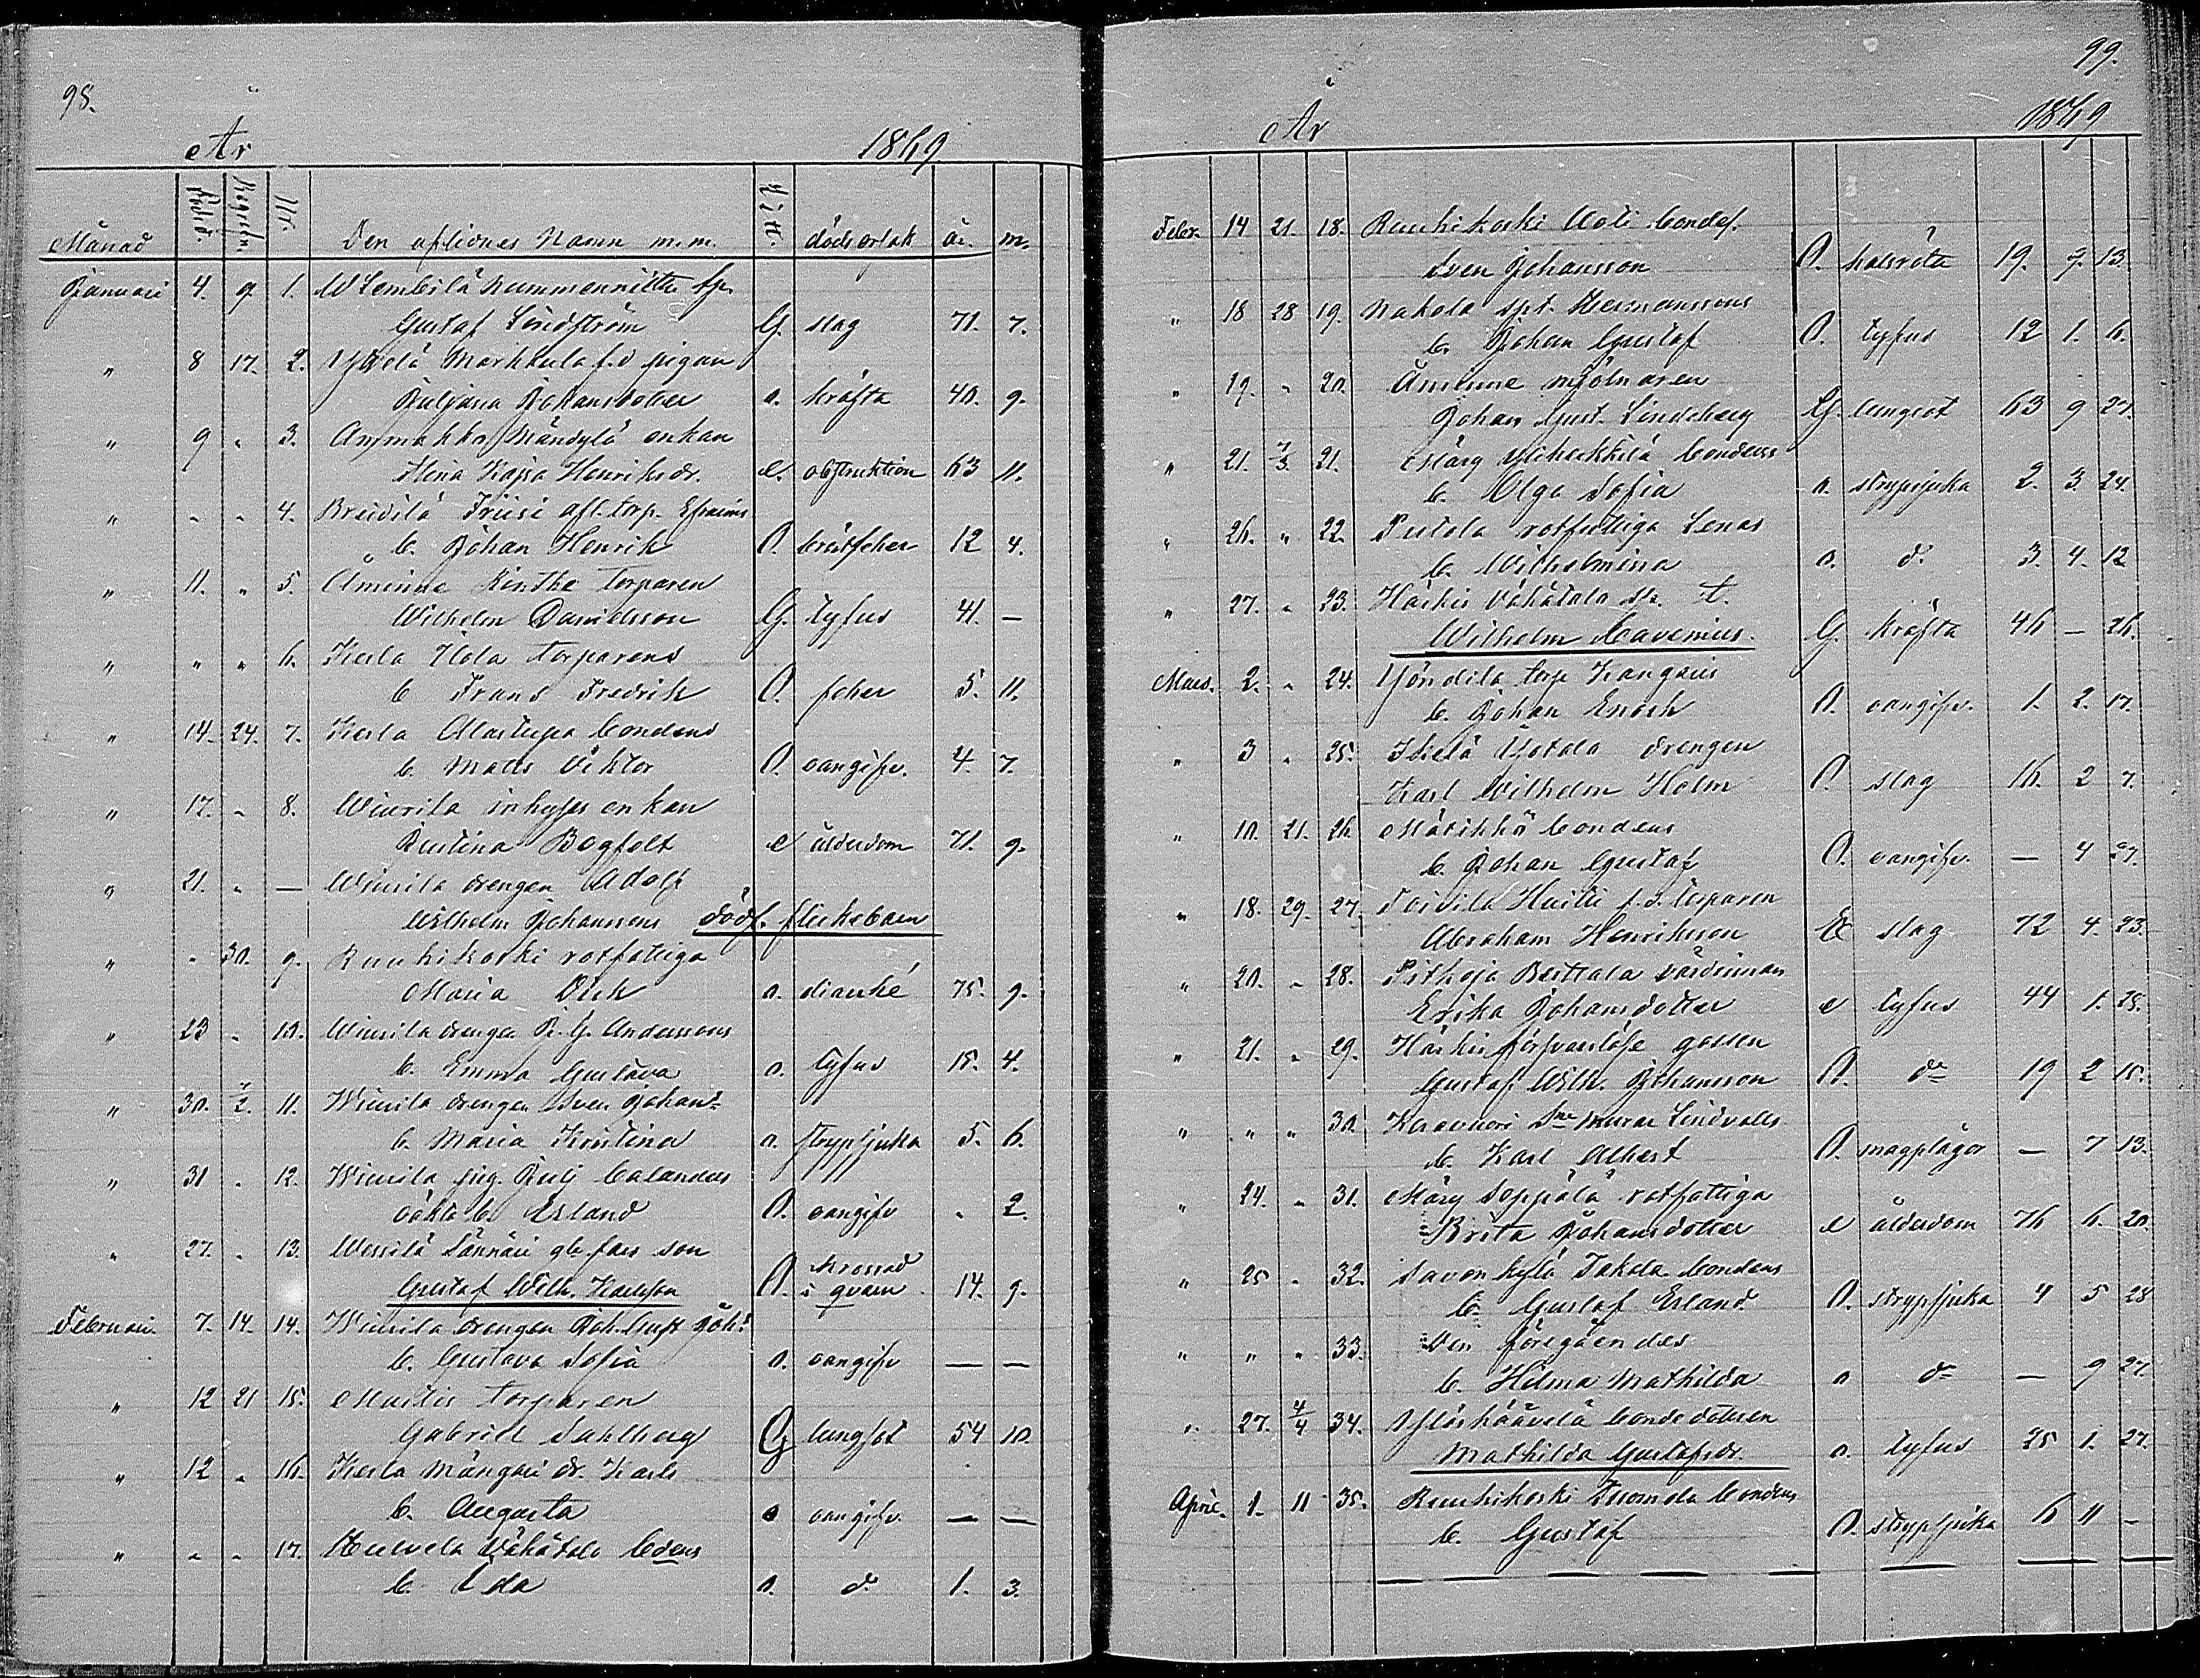 98.
År 1869
Månad Död. Begrafn. Nr. Den aflidnes Namn m.m. Vitt. dödsorsak år. m.
Januari 4. 9 1. W Lembilä Nummenniittu
Gustaf Lindström G. slag 71. 7.
" 8 17. 2. Markkula f.d pigan
Juljana Johansdotter o. kräfta 40. 9.
" 9 " 3. Ammakko Mändylä enkan
Stina Kajsa Henriksdr. e. obstruktion 63 11.
" - - 4. Breidilä Friisi afl. torp. Efraims
b. Johan Henrik O. bröstfeber 12 4.
" 11. " 5. Åminne torparen
Wilhelm Danielsson G. tyfus 41. —
" " " 6. Kesla torparens
b Frans Fredrik O. feber 5. 11.
" 14. 24. 7. Kesla bondens
b. Matts Viktor O. oangifv. 4. 7.
" 17. - 8. Wiurila inhyses enkan
Justina Bogfelt e ålderdom 71. 9.
" 21. " — Wiurila drengen Adolf
Wilhelm Johanssons dödf. flickebarn
" - 30. 9. Ruuhikoski rotfattiga
Maria Dick o. diarrhé 75. 9.
" 23 - 10. Wiurila drengen J. G. Anderssons
b. Emma Gustava o. tyfus 15. 4.
" 30. 7/2. 11. Wiurila drengen Sven Johans
b. Maria Kristina o. strypsjuka 5. 6.
" 31 . 12. Wiurila pig. Julj Calanders
oäkta b. Erland O. oangifv - 2.
" 27. . 13. son
Gustaf Wilh. Karlsson O. krossad i qvarn 14. 9.
Februari. 7. 14. 14. Wiurila drengen Joh. Gust Joh:s
b. Gustava Sofia o. oangifv — —
" 12 21 15. torparen
Gabriel Sahlberg G lungsot 54 10.
" 12 " 16. Kesla dr. Karls
b. Augusta o oangifv. — —
" - - 17. Vähätalo
b. Ida o. d:o 1. 3.
99.
År 1869
Febr. 14 21. 18. Ruuhikoski Uoti bondes.
Sven Johansson O. halsröta 19. 9. 13.
" 18 28 19. Nakola spt. Hermanssons
b. Johan Gustaf O. tyfus 12 1. 6.
" 19. " 20. Åminne mjölnaren
Johan Gust. Lindeberg G. lungsot 63 9 27.
" 21. 7/3. 21. Märy Uiheikkilä bondens
b. Olga Sofia o. strypsjuka 2. 3. 24.
" 26. " 22. rotfattiga Lenas
b. Wilhelmina o. d:o 3. 4. 12
" 27. " 23. Härkis Vähätalo
Wilhelm Cavenius. G. kräfta 46 — 26.
Mars. 2. " 24. torp
b. Johan Enock O. oangifv. 1. 2. 17.
" 3 " 25. drengen
Karl Wilhelm Holm O. slag 16. 2 7.
" 10. 21. 26 bondens
b. Johan Gustaf O. oangifv. — 4 27.
" 18. 29. 27. f.d. torparen
Abraham Henriksson E slag 72 4. 23.
" 20. " 28. värdinnan
Erika Johansdotter e tyfus 44 1. 25.
" 21. " 29. Härkis försvarslöse gossen
Gustaf Wilh. Johansson O. d:o 19 2 15.
" " " 30. Karavuori murar Lindvalls
b. Karl Albert O. magplågor — 7 13.
" 24. " 31. Märy Seppälä rotfattiga
Brita Johansdotter e ålderdom 76 6. 20.
" 25 " 32. Savonkylä Jakola bondens
b. Gustaf Erland. O. strypsjuka 4 5 28
" " " 33. Den föregåendes
b. Hilma Mathilda o d:o — 9 27.
" 27. 4/4 34. bondedottren
Mathilda Gustafsdr. o. tyfus 25 1. 27.
April. 1. 11 35. Ruuhikoski Tuomola bondens
b. Gustaf O. strypsjuka 6 11 -